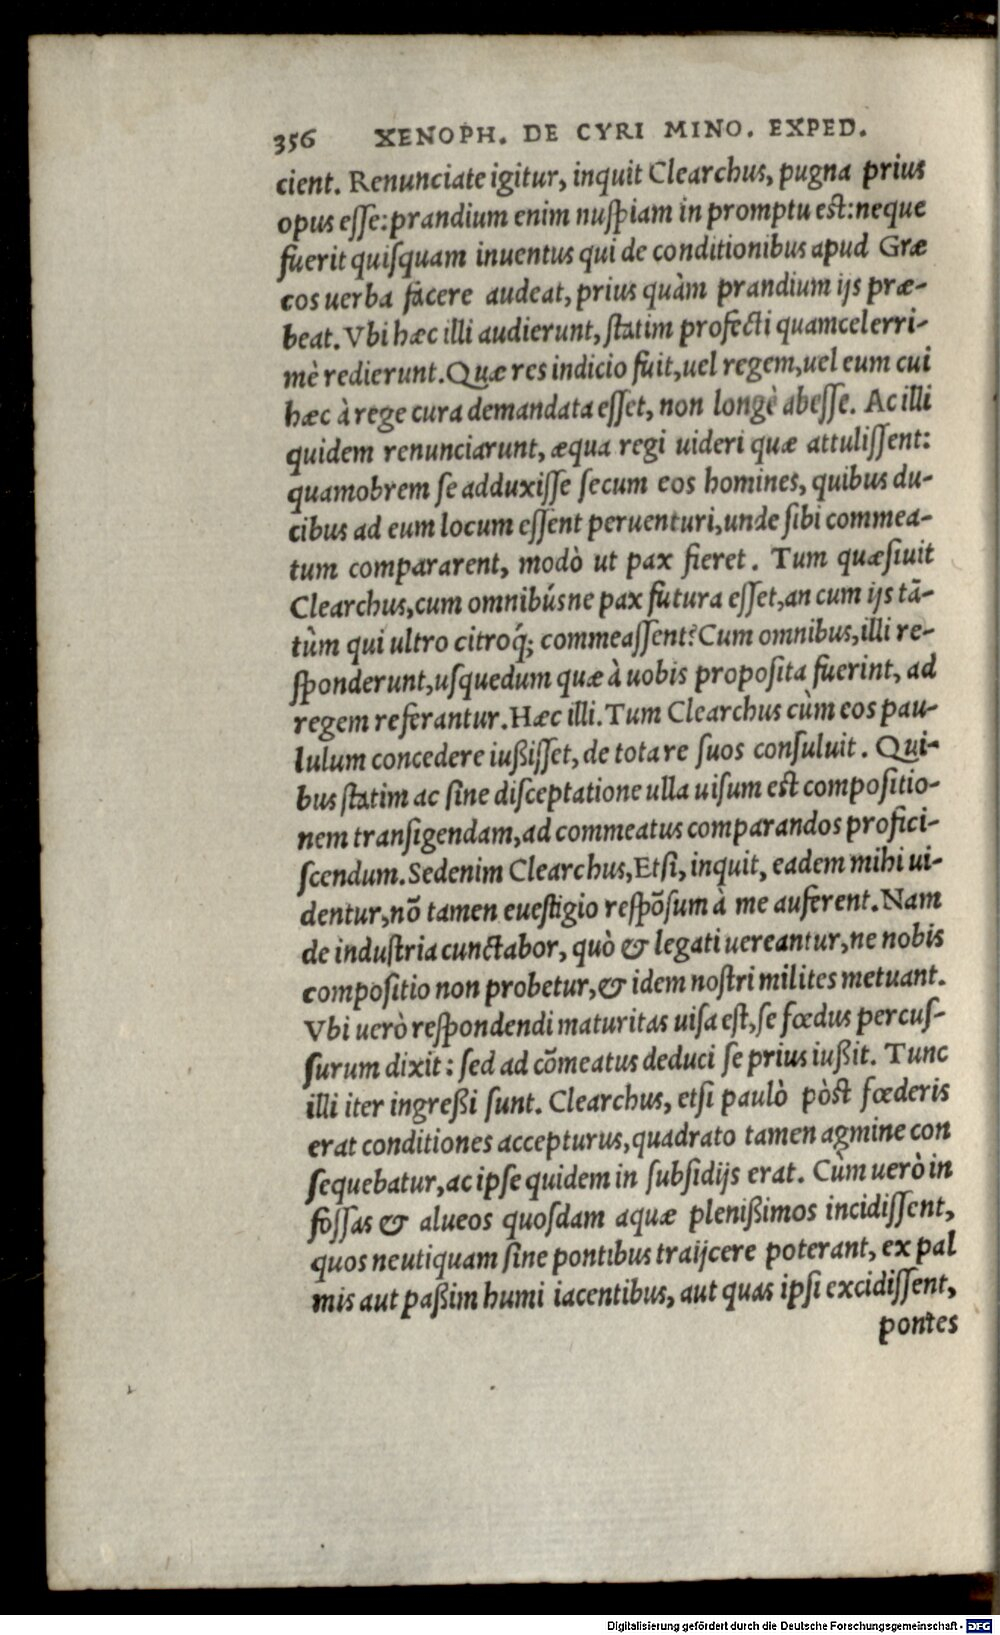 356 XENOPH. DE CYRI MINO. EXPED.
cient. Renunciate igitur, inquit Clearchus, pugna prius
opus esse: prandium enim nuspiam in promptu est: neque
fuerit quisquam inuentus qui de conditionibus apud Græ
cos uerba facere audeat, prius quàm prandium ijs præ-
beat. Vbi hæc illi audierunt, statim profecti quamcelerri-
mè redierunt. Quæ res indicio fuit, uel regem, uel eum cui
hæc à rege cura demandata esset, non longè abesse. Ac illi
quidem renunciarunt, æqua regi uideri quæ attulissent:
quamobrem se adduxisse secum eos homines, quibus du-
cibus ad eum locum essent peruenturi, unde sibi commea-
tum compararent, modò ut pax fieret. Tum quæsiuit
Clearchus, cum omnibúsne pax futura esset, an cum ijs tā-
tùm qui ultro citroq́; commeassent? Cum omnibus, illi re-
sponderunt, usquedum quæ à uobis proposita fuerint, ad
regem referantur. Hæc illi. Tum Clearchus cùm eos pau-
lulum concedere iußisset, de tota re suos consuluit. Qui-
bus statim ac sine disceptatione ulla uisum est compositio-
nem transigendam, ad commeatus comparandos profici-
scendum. Sedenim Clearchus, Etsi, inquit, eadem mihi ui-
dentur, nō tamen euestigio respōsum à me auferent. Nam
de industria cunctabor, quò & legati uereantur, ne nobis
compositio non probetur, & idem nostri milites metuant.
Vbi uerò respondendi maturitas uisa est, se fœdus percus-
surum dixit: sed ad cōmeatus deduci se prius iußit. Tunc
illi iter ingreßi sunt. Clearchus, etsi paulò pòst fœderis
erat conditiones accepturus, quadrato tamen agmine con
sequebatur, ac ipse quidem in subsidijs erat. Cùm uerò in
fossas & alueos quosdam aquæ plenißimos incidissent,
quos neutiquam sine pontibus traijcere poterant, ex pal
mis aut paßim humi iacentibus, aut quas ipsi excidissent,
pontes
Digitalisierung gefördert durch die Deutsche Forschungsgemeinschaft - DFG